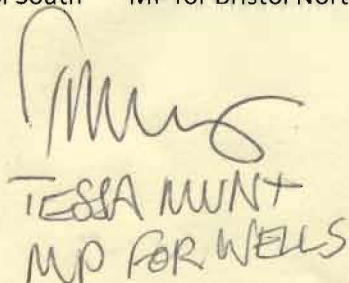 South MP for Bristol Nort
TESSA MUNT
MP FOR WELLS